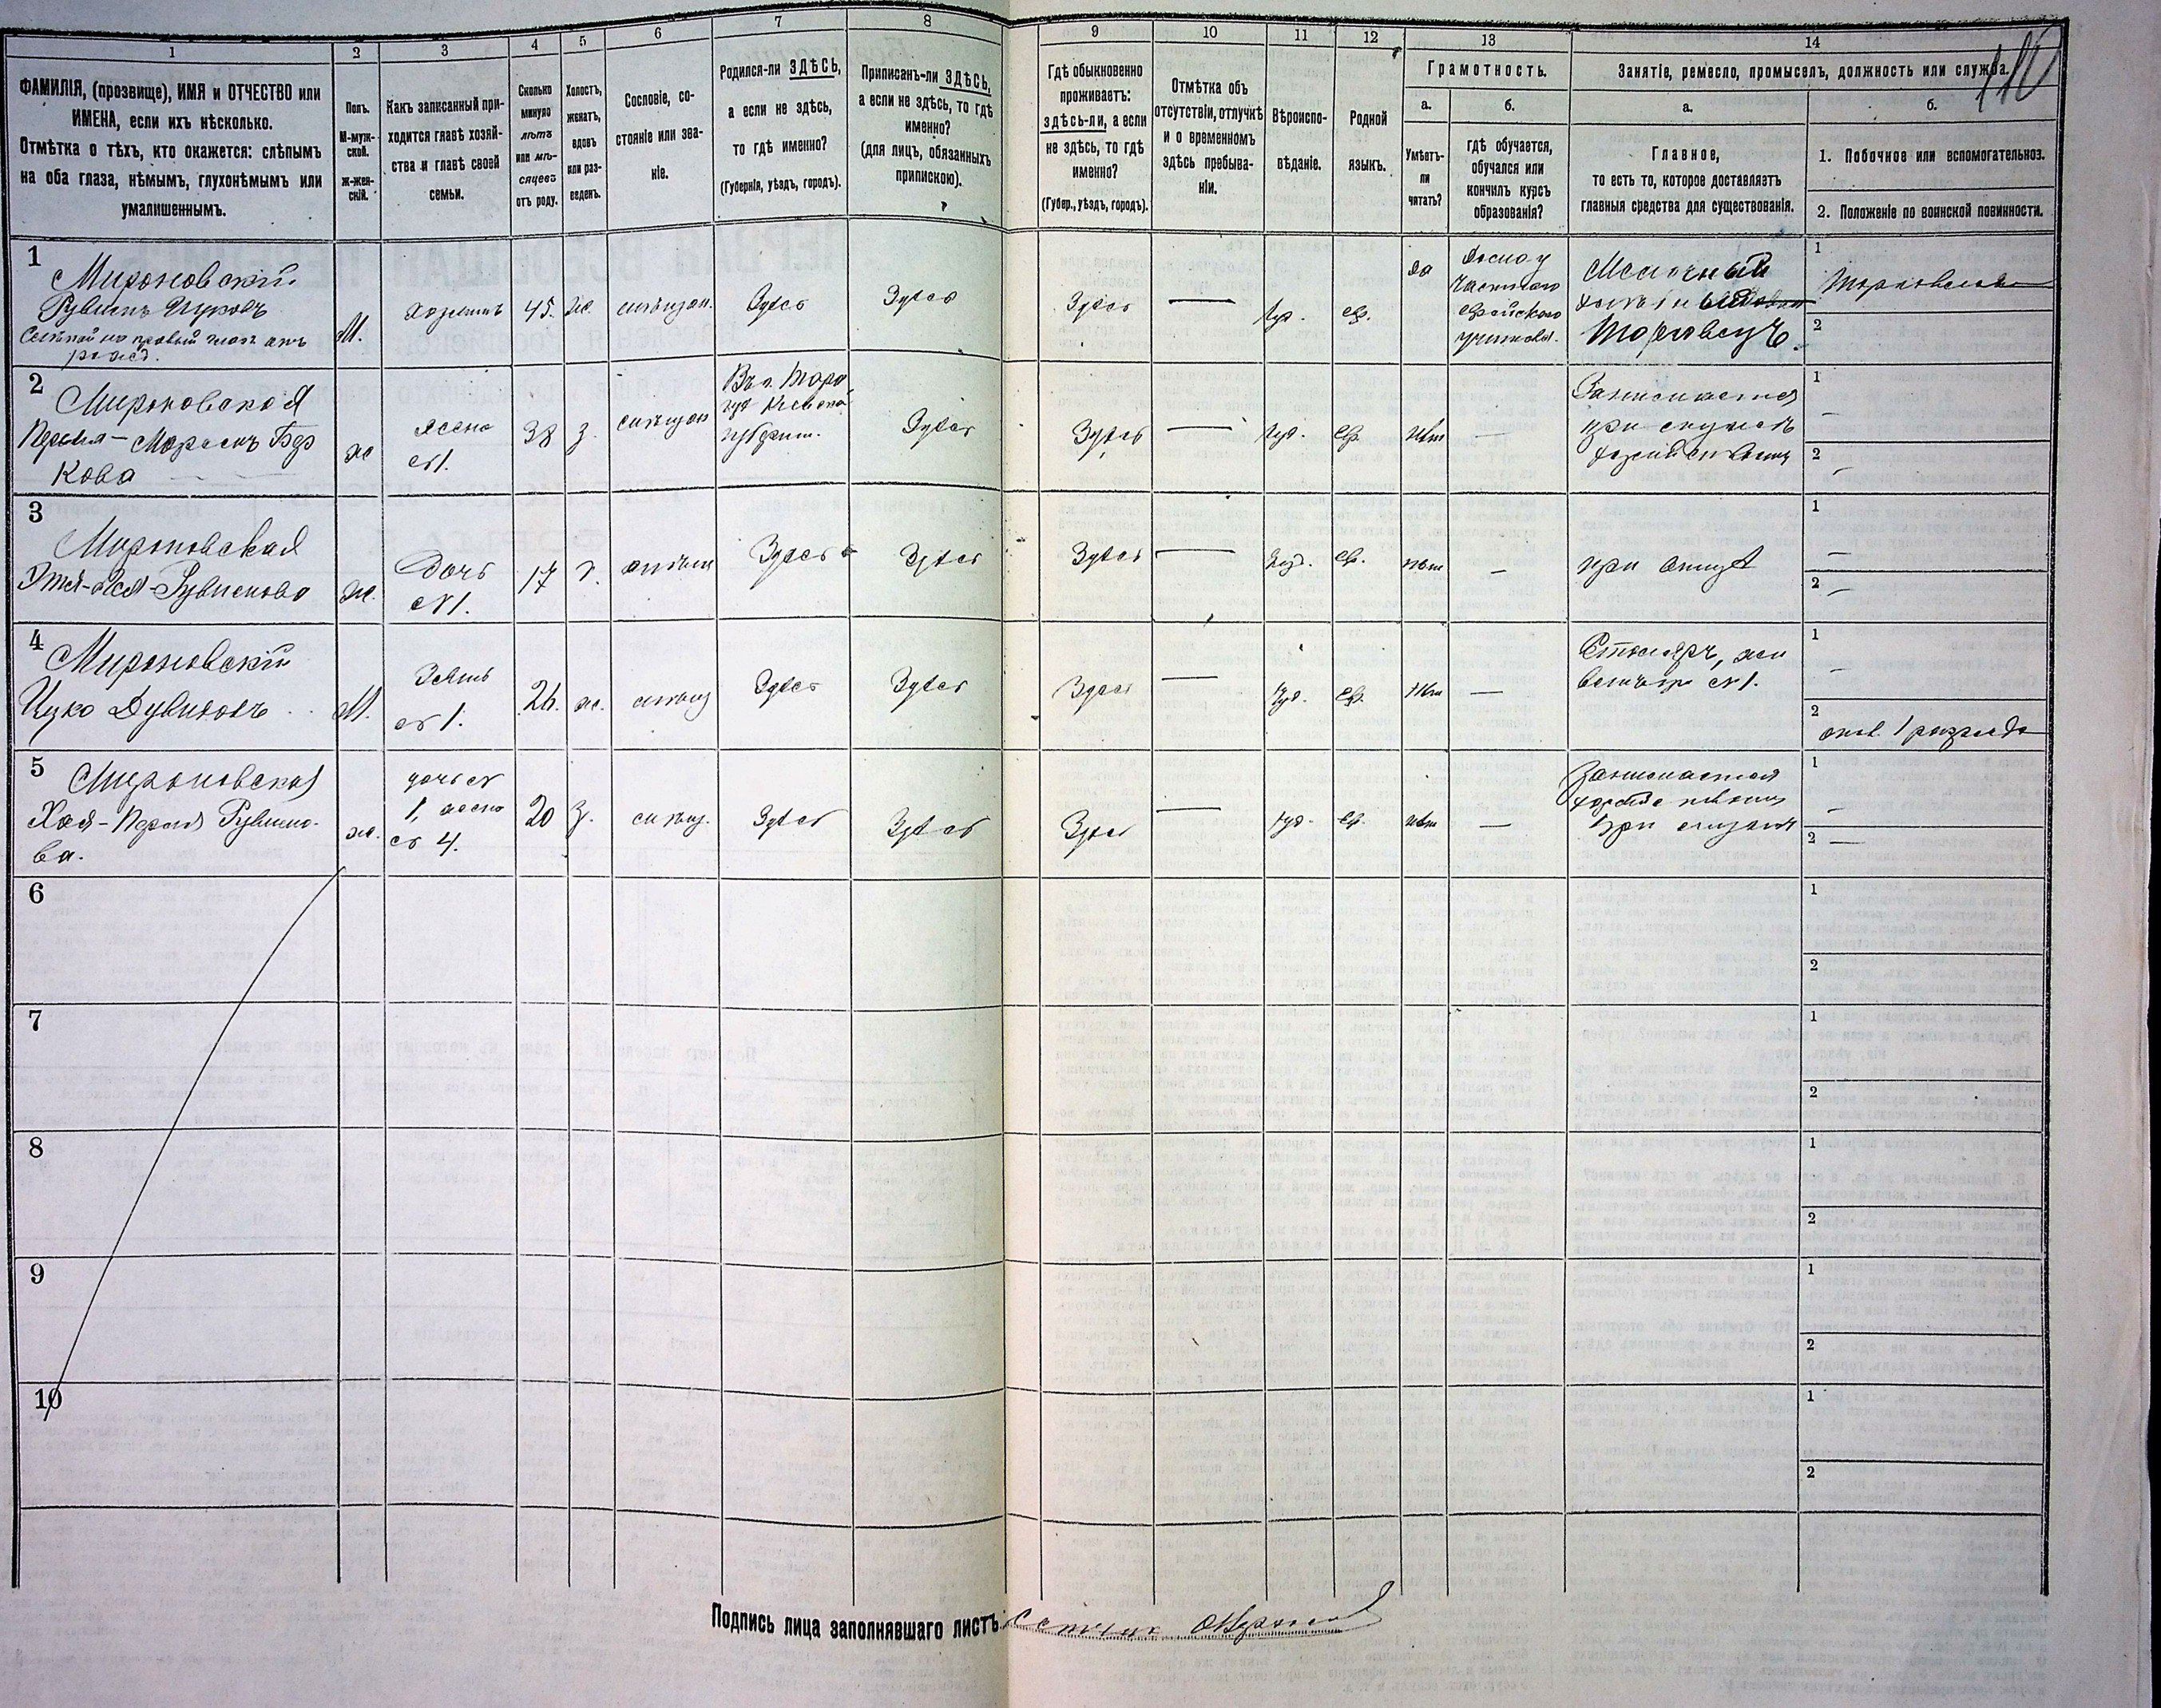 1
2
3
4
5
6
7
8
9
10
11
12
13
14
ФАМИЛІЯ, (прозвище), ИМЯ и ОТЧЕСТВО или
ИМЕНА, если ихъ нѣсколько.
Отмѣтка о тѣхъ, кто окажется: слѣпымъ
на оба глаза, нѣмымъ, глухонѣмымъ или
умалишеннымъ.
Полъ.
М-муж-
ской.
ж-жен-
скій.
Какъ записанный при-
ходится главѣ хозяй-
ства и главѣ своей
семьи.
Сколько
минуло
лѣтъ
или мѣ-
сяцевъ
отъ роду.
Холостъ,
женатъ,
вдовъ
или раз-
веденъ.
Сословіе, со-
стояніе или зва-
ніе.
Родился-ли ЗДѢСЬ,
а если не здѣсь,
то гдѣ именно?
(Губернія, уѣздъ, городъ).
Приписанъ-ли ЗДѢСЬ,
а если не здѣсь, то гдѣ
именно?
(для лицъ, обязанныхъ
припискою).
Гдѣ обыкновенно
проживаетъ:
здѣсь-ли, а если
не здѣсь, то гдѣ
именно?
(Губер., уѣздъ, городъ).
Отмѣтка объ
отсутствіи, отлучкѣ
и о временномъ
здѣсь пребыва-
ніи.
Вѣроиспо-
вѣданіе.
Родной
языкъ.
Грамотность.
а.
б.
Умѣетъ-
ли
читать?
гдѣ обучается,
обучался или
кончилъ курсъ
образованія?
Занятіе, ремесло, промыселъ, должность или служба.
а.
б.
Главное,
то есть то, которое доставляетъ
главныя средства для существованія.
1. Побочное или вспомогательное.
2. Положеніе по воинской повинности.
1
Мироновскій
Рувинъ Ицковъ
М.
хозяинъ
45.
ж.
мѣщан.
Здѣсь
Здѣсь
Здѣсь
—
Іуд.
евр.
да
Мелочный
торговецъ.
1
2
2
Мироновская
Перля-
кова
ж
жена
№1.
38
з.
мѣщан
Здѣсь
Здѣсь
—
Іуд.
евр.
нѣт
—
Занимается
при
1
2
3
Мироновская
ж.
Дочь
№1.
17
д.
мѣщ
Здѣсь
Здѣсь
Здѣсь
—
Іуд.
евр.
нѣт
—
при отцѣ
1
2
4
Мироновскій
Ицко
М.
Зять
№1.
26.
ж.
мѣщ
Здѣсь
Здѣсь
Здѣсь
—
Іуд.
евр.
нѣт
—
Столяръ,
№1.
1
2
опол. 1 разряда
5
Мироновская
Хая-Перля Рувино-
ва.
ж.
дочь №
1, жена
№ 4.
20
з.
мѣщ.
Здѣсь
Здѣсь
Здѣсь
—
Іуд.
евр.
нѣт
—
Занимается
при
1
2
6
1
2
7
1
2
8
1
2
9
1
2
10
1
2
Подпись лица заполнявшаго листъ: